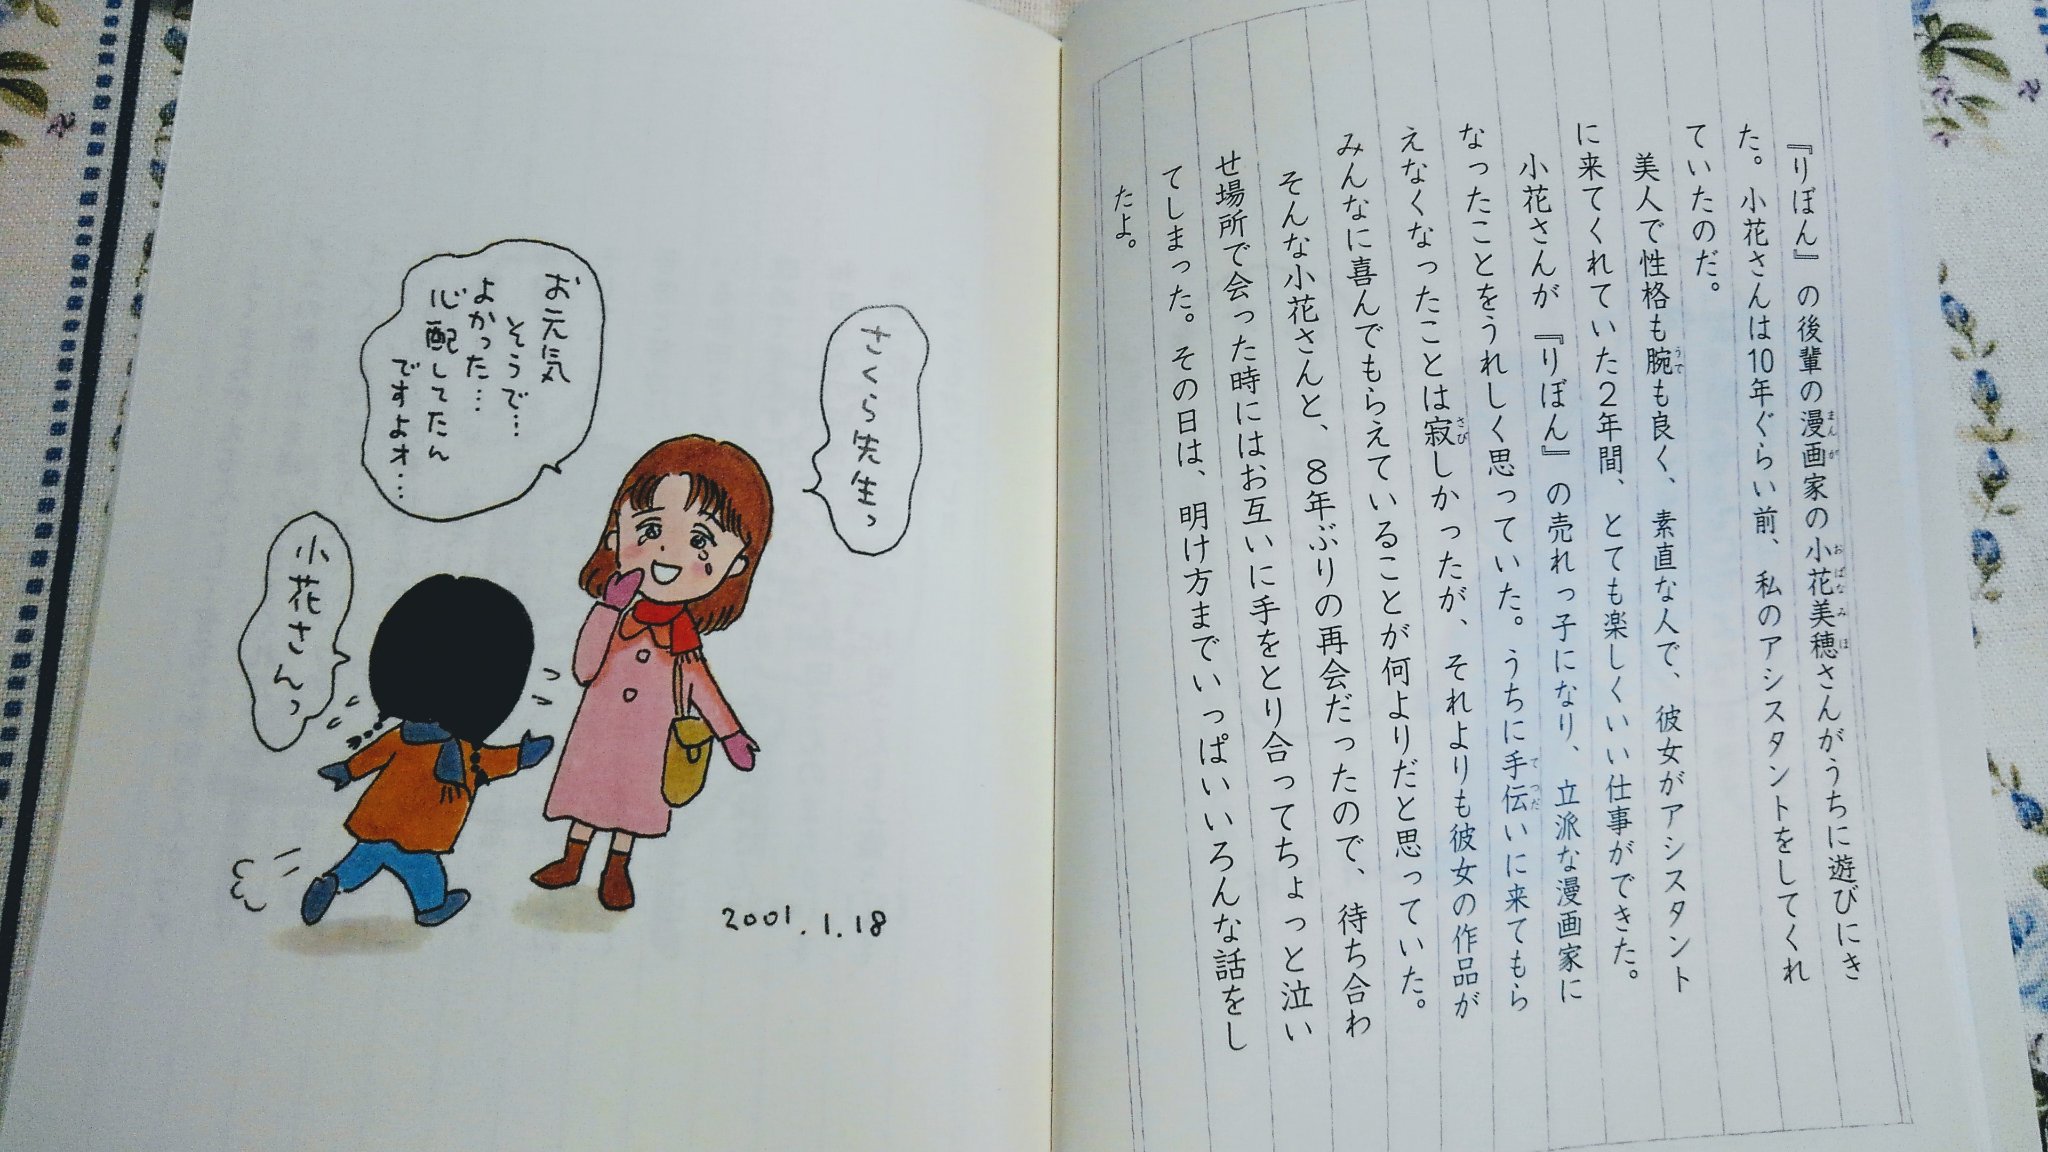 『りぼん』の後輩の漫画家の小花美穂さんがうちに遊びにき
た。小花さんは10年ぐらい前、私のアシスタントをしてくれ
ていたのだ。
美人で性格も腕も良く、素直な人で、彼女がアシスタント
に来てくれていた2年間、とても楽しくいい仕事ができた。
小花さんが『りぼん』の売れっ子になり、立派な漫画家に
なったことをうれしく思っていた。うちに手伝いに来てもら
えなくなったことは寂しかったが、それよりも彼女の作品が
みんなに喜んでもらえていることが何よりだと思っていた。
そんな小花さんと、8年ぶりの再会だったので、待ち合わ
せ場所で会った時にはお互いに手をとり合ってちょっと泣い
てしまった。その日は、明け方までいっぱいいろんな話をし
たよ。
さくら先生っ
お元気
そうで…
よかった…
心配してたん
ですよォ…
小花さんっ
2001.1.18